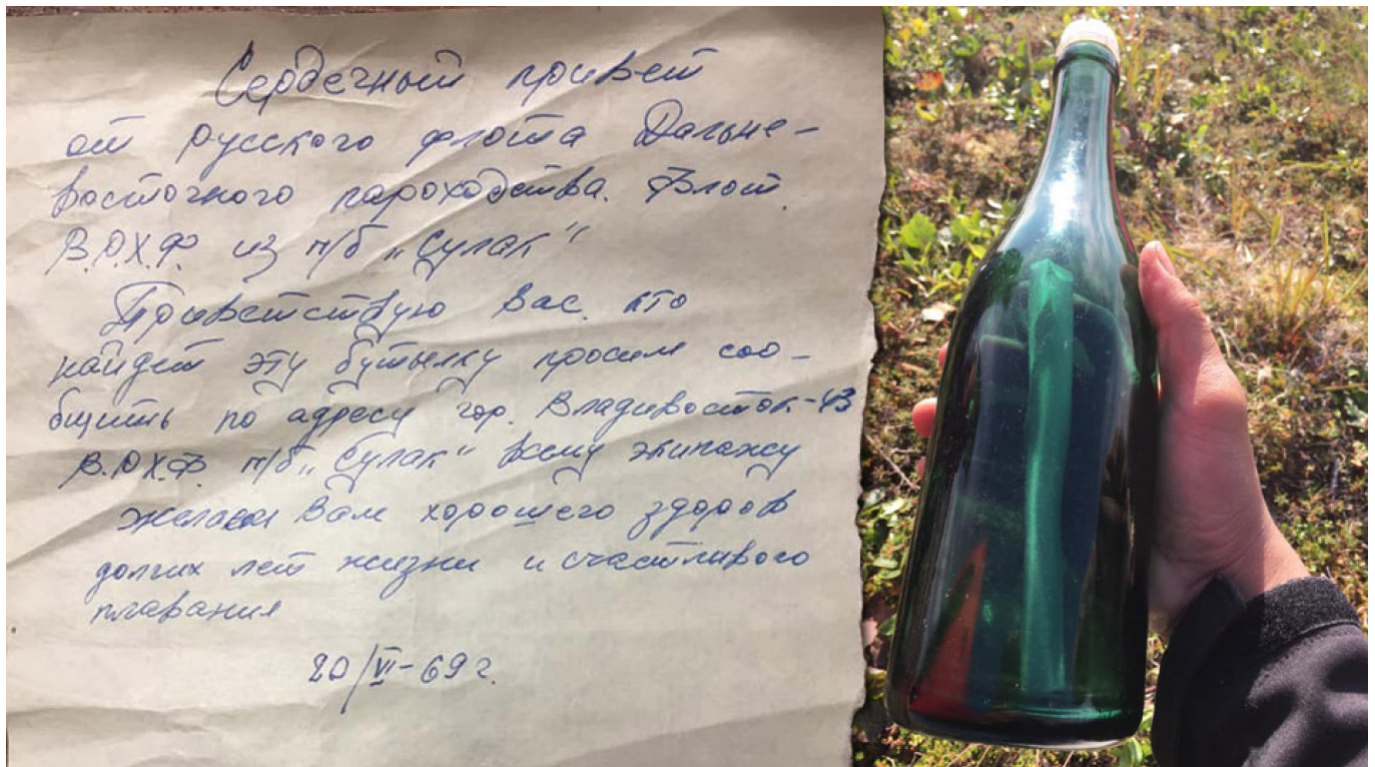 Сердечный привет
от русского флота Дальне-
восточного пароходства. Флот.
В.Р.Х.Ф. из п/б „Сулак“
Приветствую Вас кто
найдет эту бутылку просим соо-
бщить по адресу гор. Владивосток-43
В.Р.Х.Ф. п/б „Сулак“ всему экипажу
желаем Вам хорошего здоров
долгих лет жизни и счастливого
плавания
20/VI-69 г.